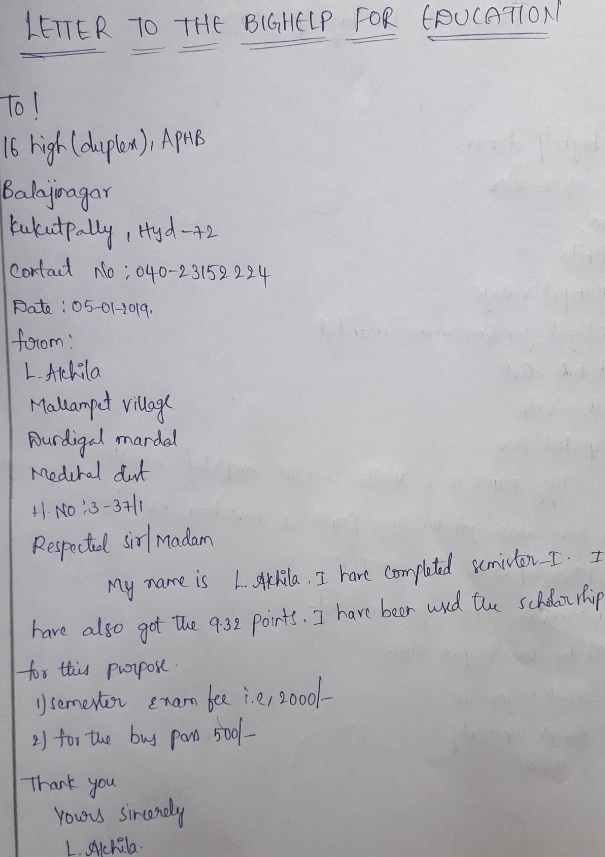 LETTER TO THE BIGHELP FOR EDUCATION
To!
16 high (duplex), APHB
Balajinagar
Kukutpally, Hyd-72
Contact No: 040-23152224
Date: 05-01-2019.
from:
L. Akhila
Mallampet village
Durdigal mandal
Medchal dist
H.No: 3-37/1
Respected sir/Madam
My name is L. Akhila. I have completed semister-I. I
have also got the 9.32 points. I have been used the scholarship
for this purpose.
1) semester exam fee i.e, 2000/-
2) for the bus pass 500/-
Thank you
Yours sincerely
L. Akhila.